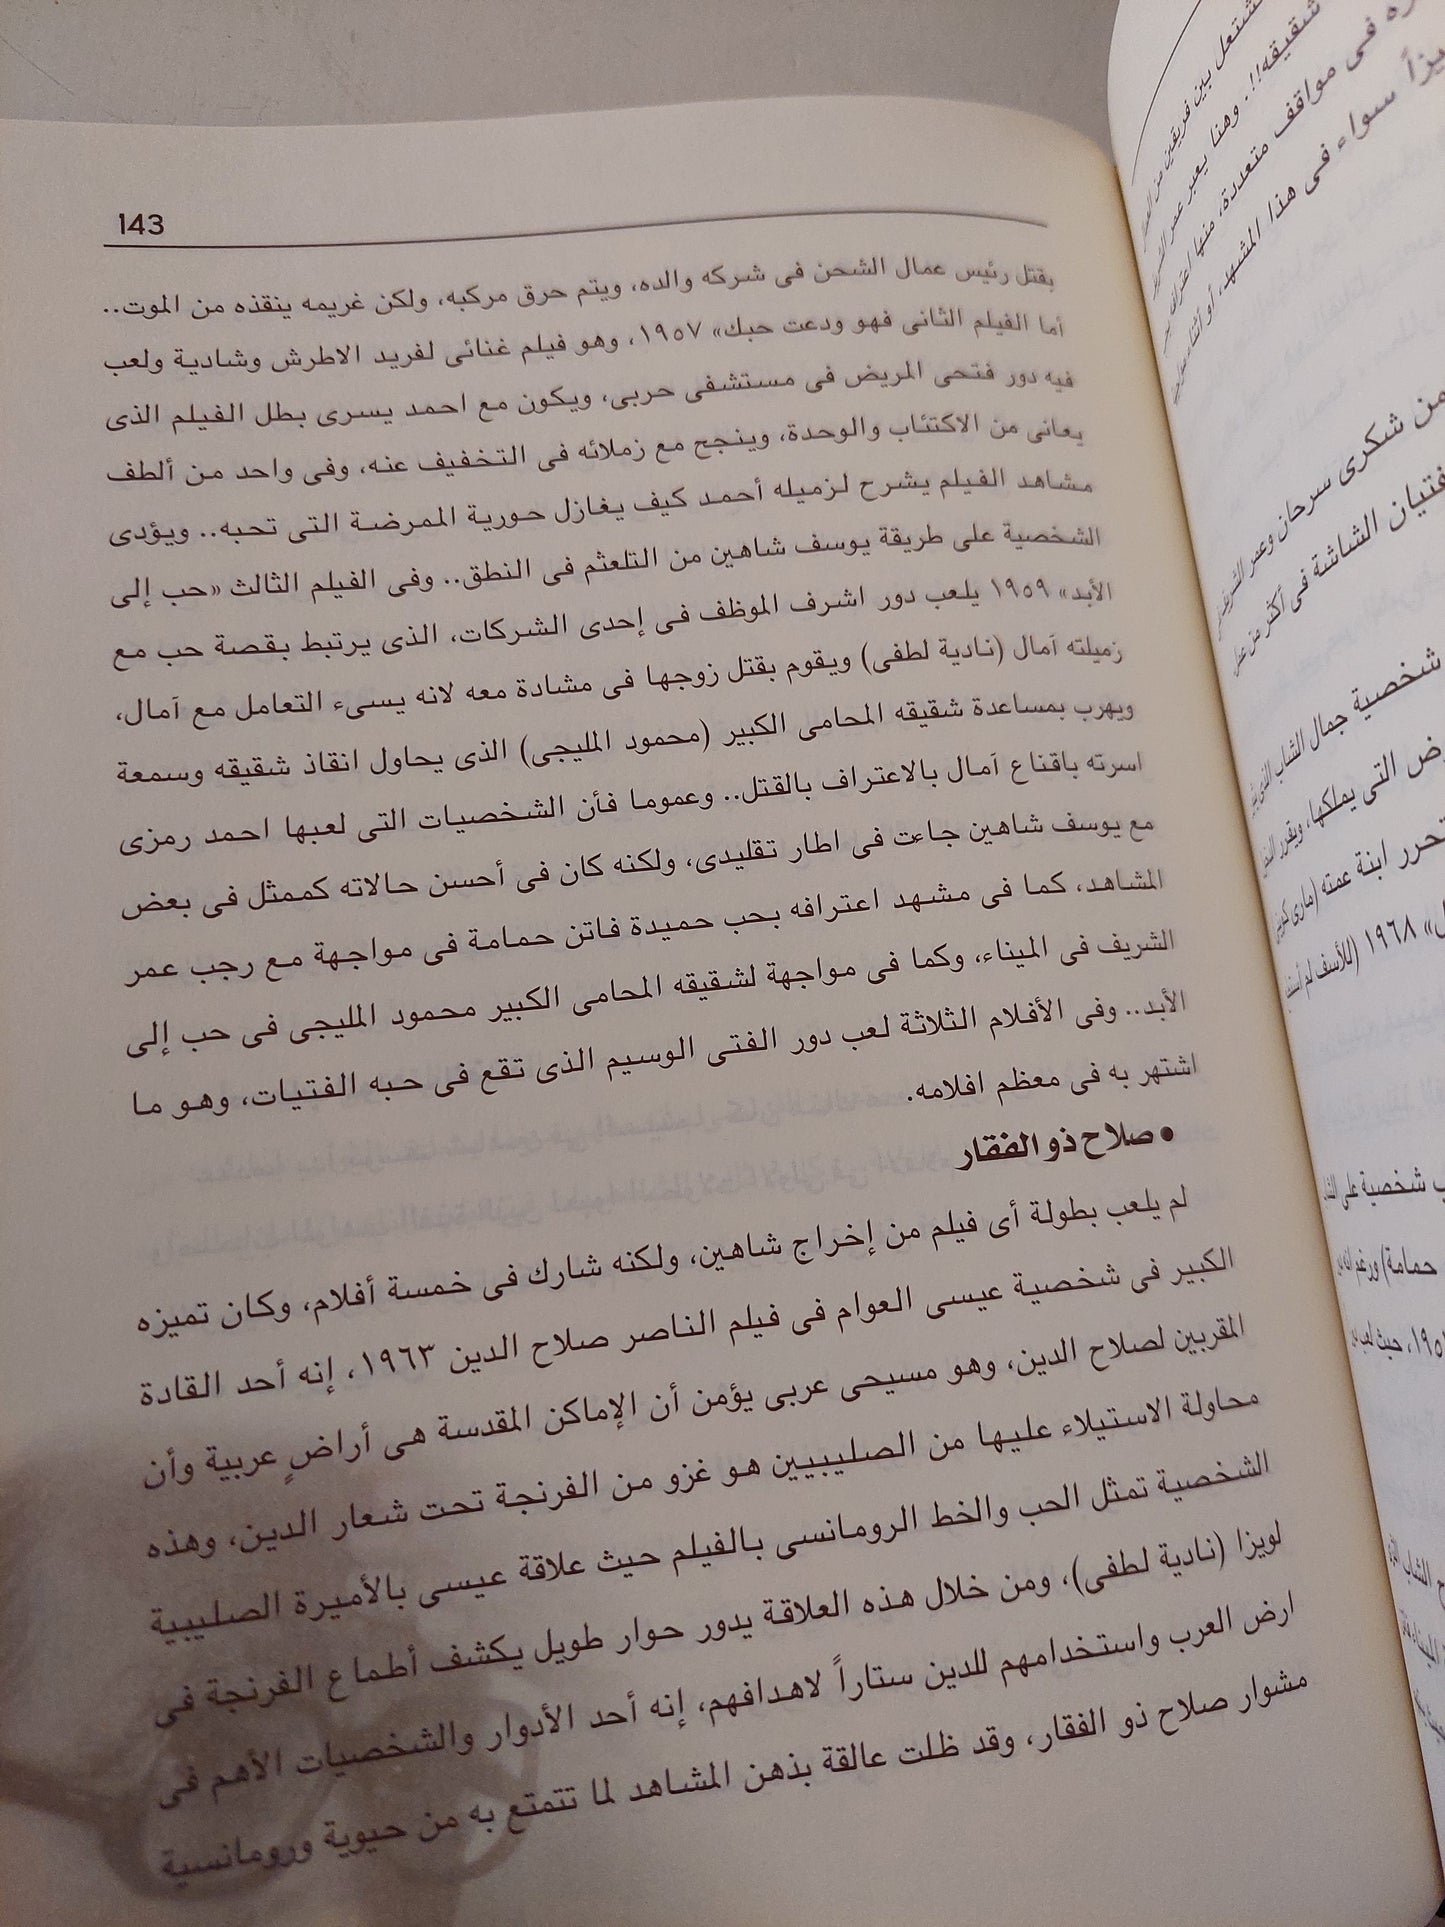 143
بقتل رئيس عمال الشحن فى شركه والده، ويتم حرق مركبه، ولكن غريمه ينقذه من الموت..
أما الفيلم الثانى فهو ودعت حبك» ١٩٥٧، وهو فيلم غنائى لفريد الاطرش وشادية ولعب
فيه دور فتحى المريض فى مستشفى حربى، ويكون مع احمد يسرى بطل الفيلم الذى
يعانى من الاكتئاب والوحدة، وينجح مع زملائه فى التخفيف عنه، وفى واحد من ألطف
مشاهد الفيلم يشرح لزميله أحمد كيف يغازل حورية الممرضة التى تحبه.. ويؤدى
الشخصية على طريقة يوسف شاهين من التلعثم فى النطق.. وفى الفيلم الثالث «حب إلى
الأبد» ١٩٥٩ يلعب دور اشرف الموظف فى إحدى الشركات، الذى يرتبط بقصة حب مع
زميلته آمال (نادية لطفى) ويقوم بقتل زوجها فى مشادة معه لانه يسىء التعامل مع آمال،
ويهرب بمساعدة شقيقه المحامى الكبير (محمود المليجى) الذى يحاول انقاذ شقيقه وسمعة
اسرته باقناع آمال بالاعتراف بالقتل.. وعموما فأن الشخصيات التى لعبها احمد رمزى
مع يوسف شاهين جاءت فى اطار تقليدى، ولكنه كان فى أحسن حالاته كممثل فى بعض
المشاهد، كما فى مشهد اعترافه بحب حميدة فاتن حمامة فى مواجهة مع رجب عمر
الشريف فى الميناء، وكما فى مواجهة لشقيقه المحامى الكبير محمود المليجى فى حب إلى
الأبد.. وفى الأفلام الثلاثة لعب دور الفتى الوسيم الذى تقع فى حبه الفتيات، وهو ما
اشتهر به فى معظم افلامه.
• صلاح ذو الفقار
لم يلعب بطولة أى فيلم من إخراج شاهين، ولكنه شارك فى خمسة أفلام، وكان تميزه
الكبير فى شخصية عيسى العوام فى فيلم الناصر صلاح الدين ١٩٦٣، إنه أحد القادة
المقربين لصلاح الدين، وهو مسيحى عربى يؤمن أن الإماكن المقدسة هى أراضٍ عربية وأن
محاولة الاستيلاء عليها من الصليبيين هو غزو من الفرنجة تحت شعار الدين، وهذه
الشخصية تمثل الحب والخط الرومانسى بالفيلم حيث علاقة عيسى بالأميرة الصليبية
لويزا (نادية لطفى)، ومن خلال هذه العلاقة يدور حوار طويل يكشف أطماع الفرنجة فى
ارض العرب واستخدامهم للدين ستاراً لاهدافهم، إنه أحد الأدوار والشخصيات الأهم فى
مشوار صلاح ذو الفقار، وقد ظلت عالقة بذهن المشاهد لما تتمتع به من حيوية ورومانسية
شتعل بين فريقين من
شقيقه!!.. وهنا يعبر عمر
فى مواقف متعددة، منها
سواء فى هذا المشهد، أو
من شكرى سرحان وعمر الشريف
فتيان الشاشة فى أكثر من عمل
شخصية جمال الشاب الذى
التى يملكها، ويقرر
تحرر ابنة عمته (مارى كوينى
١٩٦٨ (للأسف لم
شخصية على
حمامة) ورغم
حيث لعب
الشاب